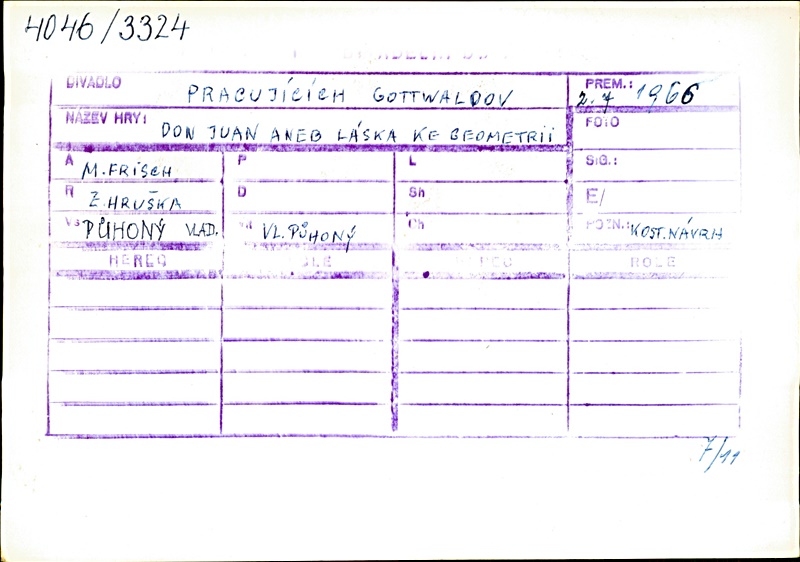 4046/3324
DIVADLO PRACUJÍCÍCH GOTTWALDOV PREM.: 2.7 1966
NÁZEV HRY: DON JUAN ANEB LÁSKA KE GEOMETRII FOTO
A M.FRISCH P L SIG.:
R Z.HRUŠKA D Sh E/
Vs PŮHONÝ VLAD. VL.PŮHONÝ Ch POZN.: KOST.NÁVRH
HEREC ROLE HEREC ROLE
7/11